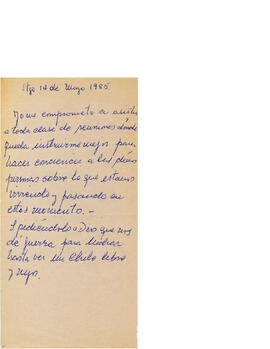 Stgo 14 de Mayo 1985.
Yo me comprometo a asistir
a toda clase de reuniones donde
pueda instruirme mejor para
hacer conciencia a las demas
personas sobre lo que estamos
viviendo y pasando en
estos momento. –
y pidiéndole a Dios que nos
dé fuerza para luchar
hasta ver un Chile libre
y mejor.